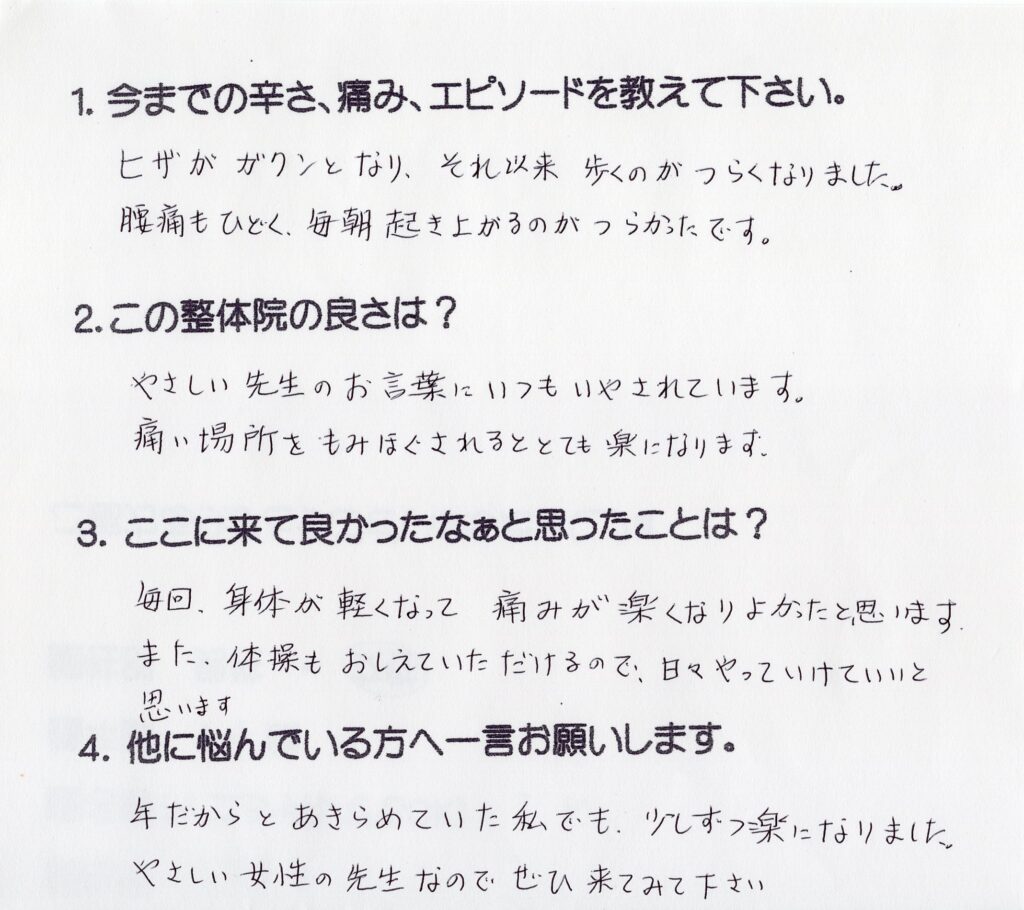 1. 今までの辛さ、痛み、エピソードを教えて下さい。
ヒザが ガクンとなり、それ以来 歩くのが つらくなりました。
腰痛もひどく、毎朝 起き上がるのが つらかったです。
2. この整体院の良さは？
やさしい 先生の お言葉に いつも いやされています。
痛い場所を もみほぐされると とても 楽になります。
3. ここに来て良かったなぁと思ったことは？
毎回、身体が 軽くなって 痛みが 楽くなりよかったと思います。
また、体操も おしえていただけるので、日々やっていけていいと
思います
4. 他に悩んでいる方へ一言お願いします。
年だからと あきらめていた 私でも、少しずつ楽になりました。
やさしい 女性の 先生なので ぜひ 来てみて下さい